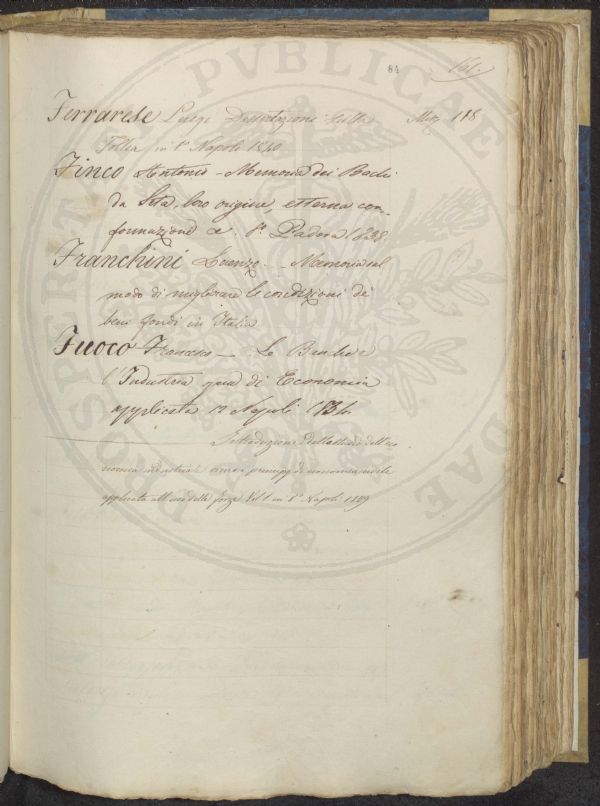 84
161.
Ferrarese Luigi Dissertazione sulla Misc 118
Follia in 8° Napoli 1840
Finco Antonio - Memoria dei Bachi
da Seta, loro origine, esterna con-
formazione &. 8° Padova 1838.
Franchini Lorenzo - Memoria sul
modo di migliorare le condizioni de
beni fondi in Italia
Fuoco Francesco - Le Banche e
l'Industria opera di Economia
applicata 12 Napoli 1834
Introduzione dello studio dell'eco
nomia industriale o sieno principj di economia civile
applicata all'uso delle forze Vol 1 in 8° Napoli 1829
PROSPERITATI PVBLICAE